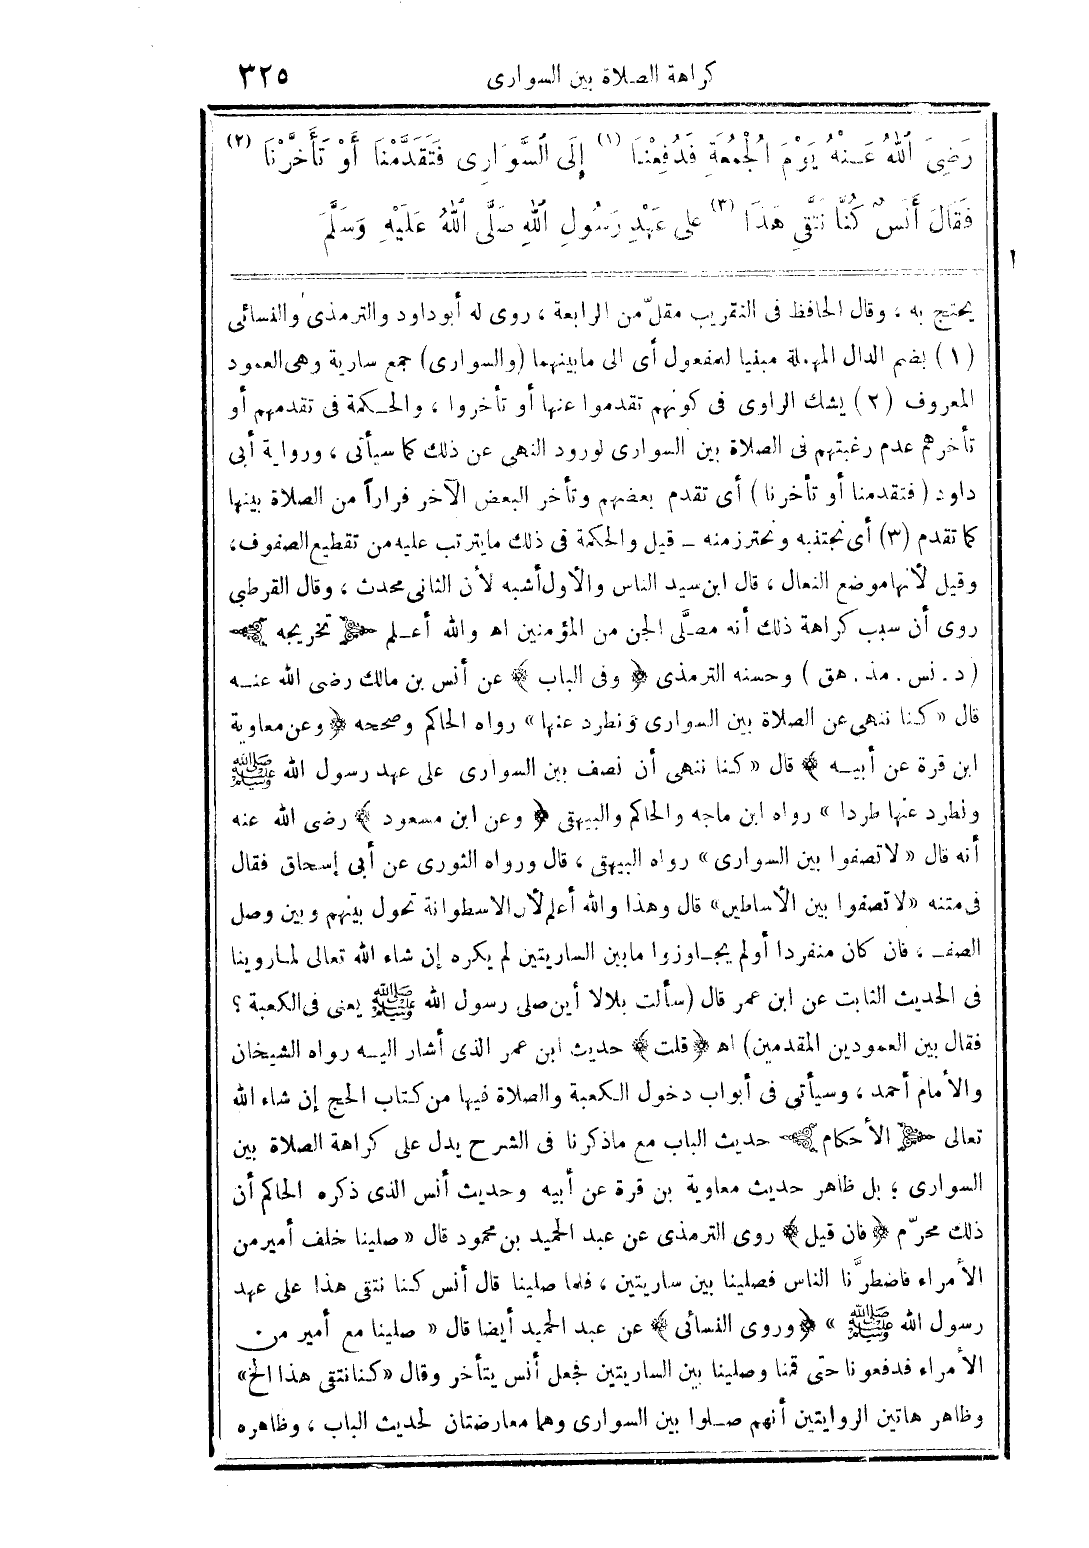 كراهة الصلاة بين السوارى ٣٢٥
رَضِىَ ٱللهُ عَنْهُ يَوْمَ الْجُمُعَةِ فَدُفِعْنَا (١) إِلَى السَّوَارِى فَتَقَدَّمْنَا أَوْ تَأَخَّرْنَا (٢)
فَقَالَ أَنَسٌ كُنَّا نَتَّقِى هَذَا (٣) على عَهْدِ رَسُولِ ٱللهِ صَلَّى ٱللهُ عَلَيْهِ وَسَلَّمَ
يحتج به ، وقال الحافظ فى التقريب مقلّ من الرابعة ، روى له أبوداود والترمذى والنسائى
(١) بضم الدال المهملة مبنيا لمفعول أى الى مابينهما (والسوارى) جمع سارية وهى العمود
المعروف (٢) يشك الراوى فى كونهم تقدموا عنها أو تأخروا ، والحكمة فى تقدمهم أو
تأخرهم عدم رغبتهم فى الصلاة بين السوارى لورود النهى عن ذلك كما سيأتى ، ورواية أبى
داود (فتقدمنا أو تأخرنا) أى تقدم بعضهم وتأخر البعض الآخر فراراً من الصلاة بينها
كما تقدم (٣) أى نجتنبه ونحترز منه – قيل والحكمة فى ذلك مايترتب عليه من تقطيع الصفوف،
وقيل لأنها موضع النعال ، قال ابن سيد الناس والأول أشبه لأن الثانى محدث ، وقال القرطبى
روى أن سبب كراهة ذلك أنه مصلَّى الجن من المؤمنين اه والله أعلم ﴿ تخريجه ﴾
(د . نس . مذ . هق) وحسنه الترمذى ﴿ وفى الباب ﴾ عن أنس بن مالك رضى الله عنه
قال «كنا ننهى عن الصلاة بين السوارى ونطرد عنها» رواه الحاكم وصححه ﴿ وعن معاوية
ابن قرة عن أبيه ﴾ قال «كنا ننهى أن نصف بين السوارى على عهد رسول الله ﷺ
ونطرد عنها طردا» رواه ابن ماجه والحاكم والبيهقى ﴿ وعن ابن مسعود ﴾ رضى الله عنه
أنه قال «لاتصفوا بين السوارى» رواه البيهقى ، قال ورواه الثورى عن أبى إسحاق فقال
فى متنه «لاتصفوا بين الأساطين» قال وهذا والله أعلم لأن الاسطوانة تحول بينهم وبين وصل
الصف ، فان كان منفردا أولم يجاوزوا مابين الساريتين لم يكره إن شاء الله تعالى لما روينا
فى الحديث الثابت عن ابن عمر قال (سألت بلالا أين صلى رسول الله ﷺ يعنى فى الكعبة ؟
فقال بين العمودين المقدمين) اه ﴿ قلت ﴾ حديث ابن عمر الذى أشار اليه رواه الشيخان
والأمام أحمد ، وسيأتى فى أبواب دخول الكعبة والصلاة فيها من كتاب الحج إن شاء الله
تعالى ﴿ الأحكام ﴾ حديث الباب مع ماذكرنا فى الشرح يدل على كراهة الصلاة بين
السوارى ؛ بل ظاهر حديث معاوية بن قرة عن أبيه وحديث أنس الذى ذكره الحاكم أن
ذلك محرّم ﴿ فان قيل ﴾ روى الترمذى عن عبد الحميد بن محمود قال « صلينا خلف أمير من
الأمراء فاضطرَّنا الناس فصلينا بين ساريتين ، فلما صلينا قال أنس كنا نتقى هذا على عهد
رسول الله ﷺ » ﴿ وروى النسائى ﴾ عن عبد الحميد أيضا قال « صلينا مع أمير من
الأمراء فدفعونا حتى قمنا وصلينا بين الساريتين فجعل أنس يتأخر وقال «كنانتقى هذا الخ»
وظاهر هاتين الروايتين أنهم صلوا بين السوارى وهما معارضتان لحديث الباب ، وظاهره